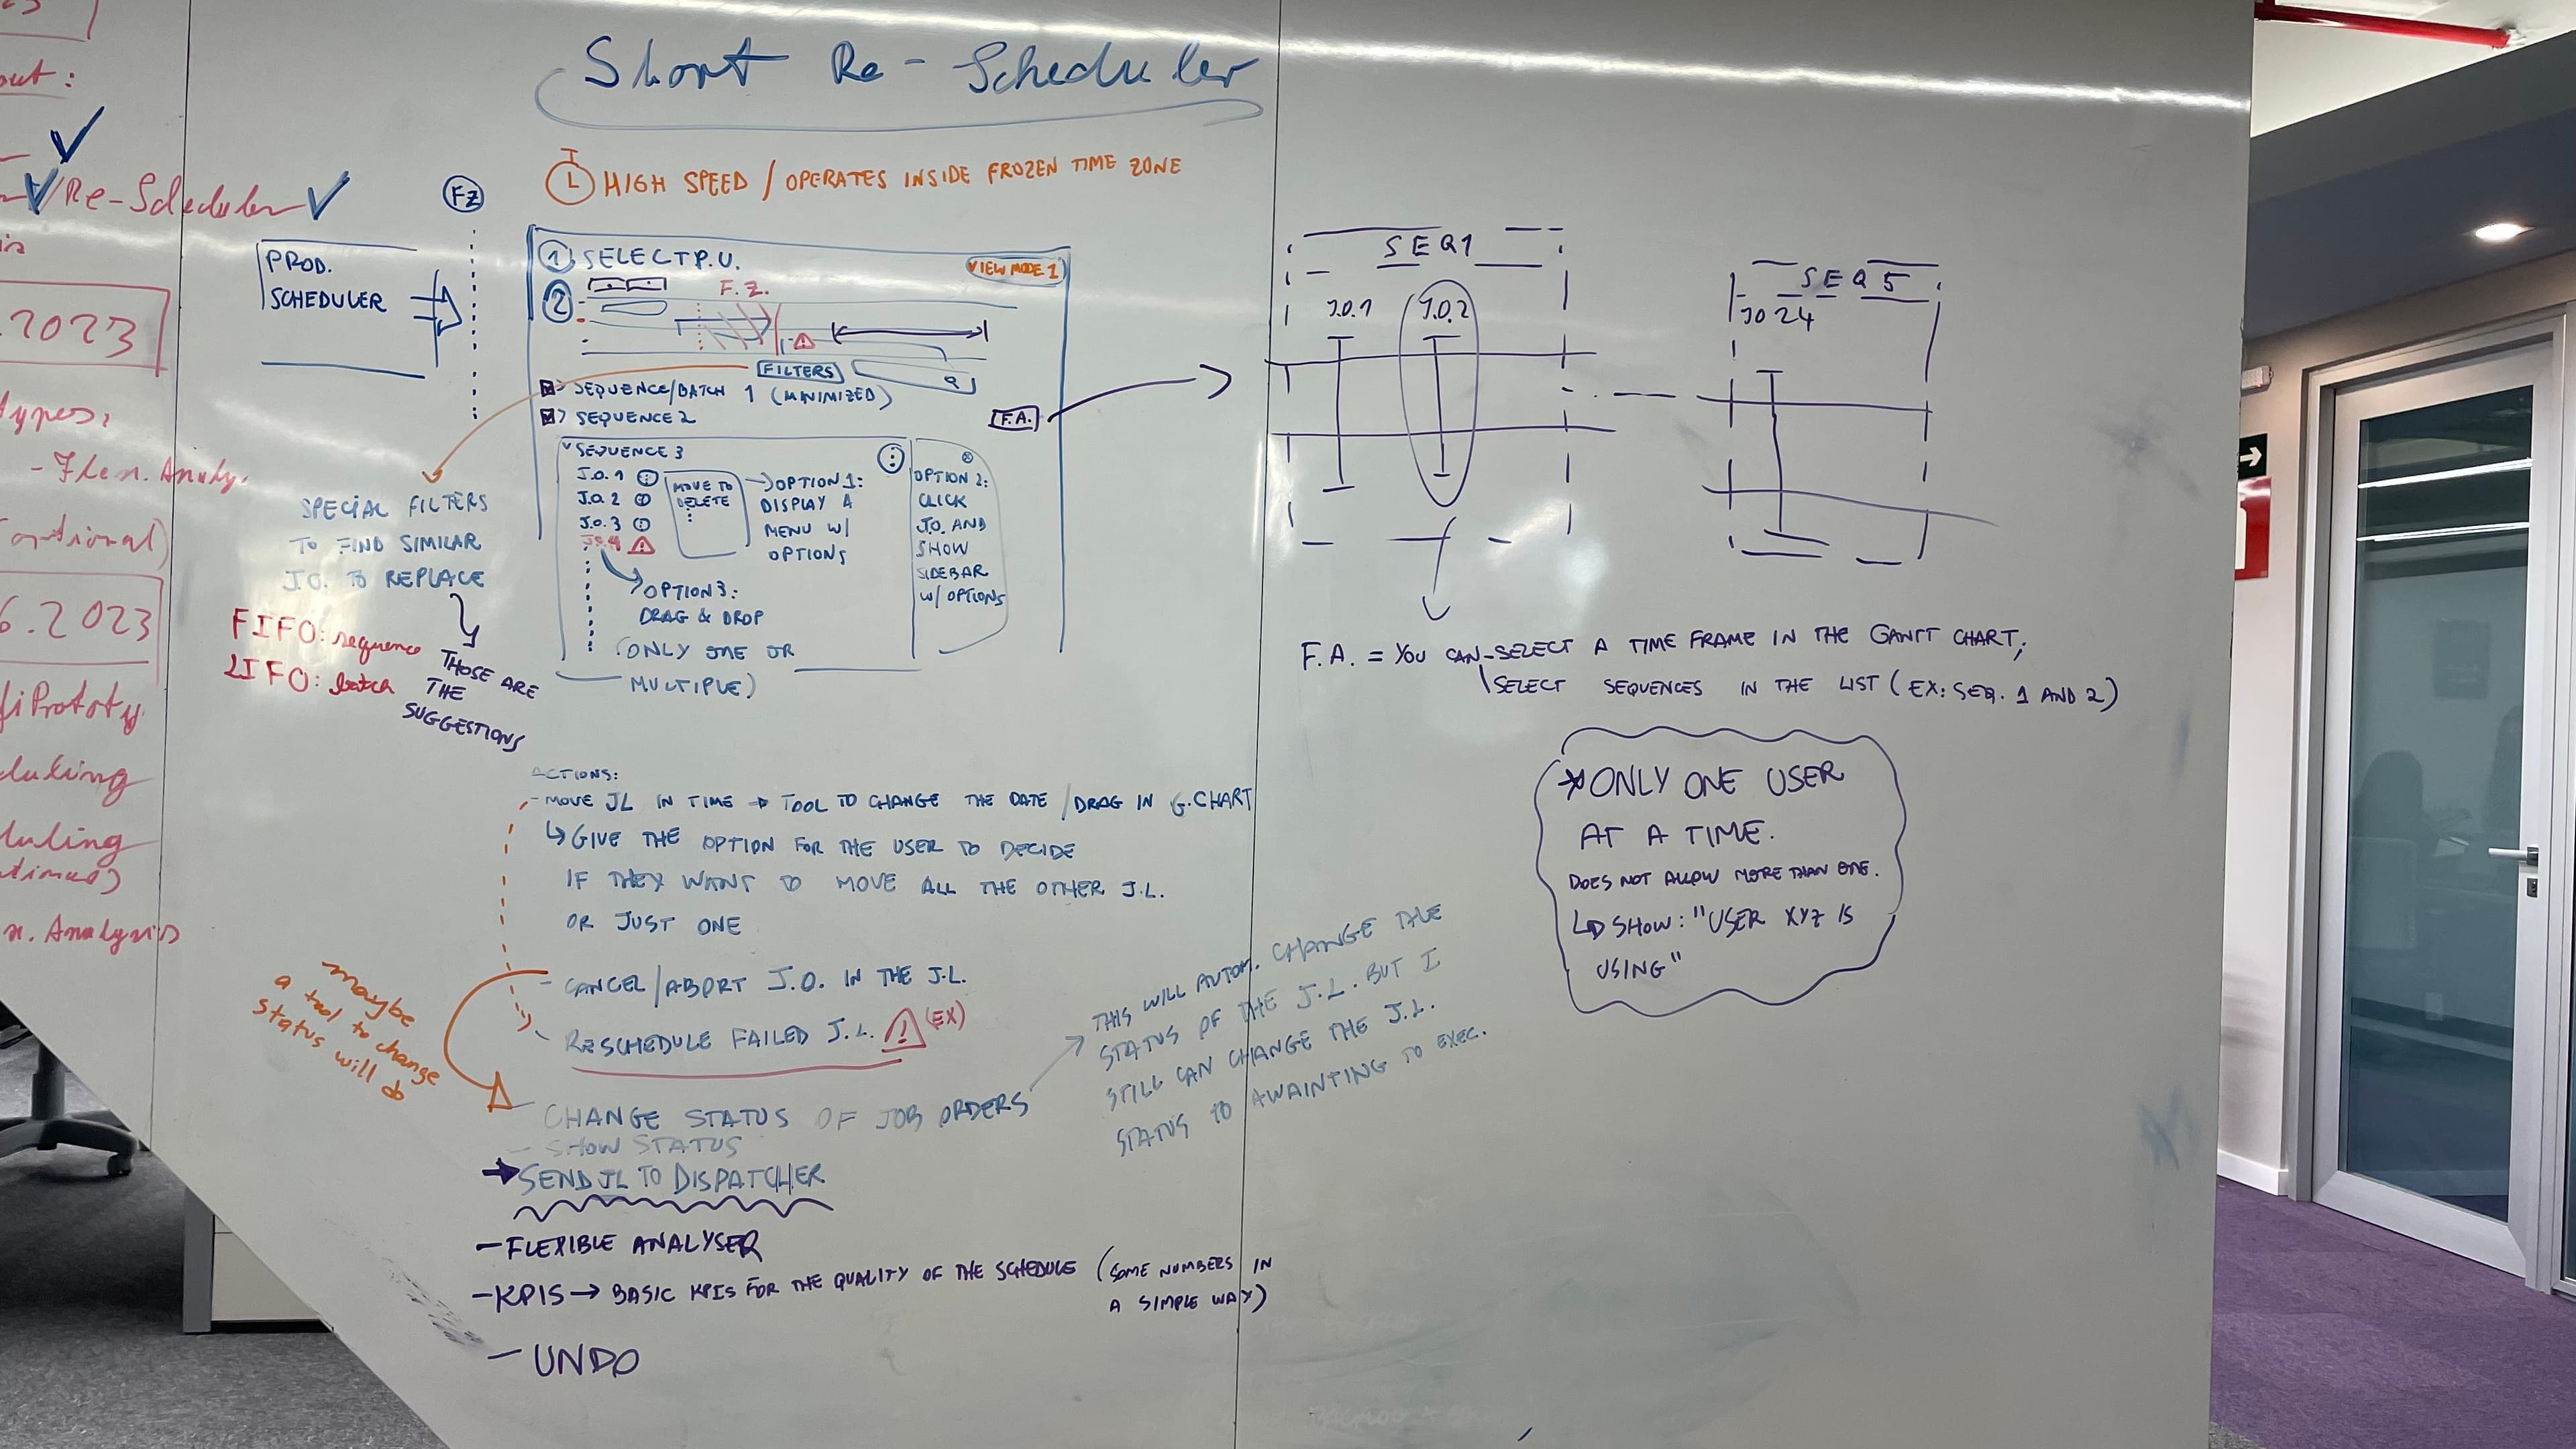 out:
Re-Scheduler
2023
types,
- Flex. Analy.
6.2023
n. Analysis
Short Re-Scheduler
HIGH SPEED / OPERATES INSIDE FROZEN TIME ZONE
FZ
PROD.
SCHEDULER
1 SELECT P.U.
VIEW MODE 1
2
F.Z.
FILTERS
> SEQUENCE/BATCH 1 (MINIMIZED)
> SEQUENCE 2
F.A.
SEQUENCE 3
J.O. 1
J.O. 2
J.O. 3
J.O. 4
MOVE TO
DELETE
OPTION 1:
DISPLAY A
MENU W/
OPTIONS
OPTION 2:
CLICK
J.O. AND
SHOW
SIDEBAR
W/ OPTIONS
OPTION 3:
DRAG & DROP
(ONLY ONE OR
MULTIPLE)
SPECIAL FILTERS
TO FIND SIMILAR
J.O. TO REPLACE
FIFO: sequence
LIFO: batch
THOSE ARE
THE
SUGGESTIONS
ACTIONS:
- MOVE JL IN TIME → TOOL TO CHANGE THE DATE / DRAG IN G.CHART
↳ GIVE THE OPTION FOR THE USER TO DECIDE
IF THEY WANT TO MOVE ALL THE OTHER J.L.
OR JUST ONE
- CANCEL/ABORT J.O. IN THE J.L.
- RESCHEDULE FAILED J.L. ! (EX)
- CHANGE STATUS OF JOB ORDERS
- SHOW STATUS
→ SEND JL TO DISPATCHER
- FLEXIBLE ANALYSER
- KPIS → BASIC KPIS FOR THE QUALITY OF THE SCHEDULE (SOME NUMBERS IN
A SIMPLE WAY)
- UNDO
maybe
a tool to change
status will do
THIS WILL AUTOM. CHANGE THE
STATUS OF THE J.L. BUT I
STILL CAN CHANGE THE J.L.
STATUS TO AWAINTING TO EXEC.
SEQ1
J.O.1
J.O.2
SEQ 5
JO 24
F.A. = YOU CAN SELECT A TIME FRAME IN THE GANTT CHART;
SELECT SEQUENCES IN THE LIST (EX: SEQ. 1 AND 2)
* ONLY ONE USER
AT A TIME.
DOES NOT ALLOW MORE THAN ONE.
↳ SHOW: "USER XYZ IS
USING"